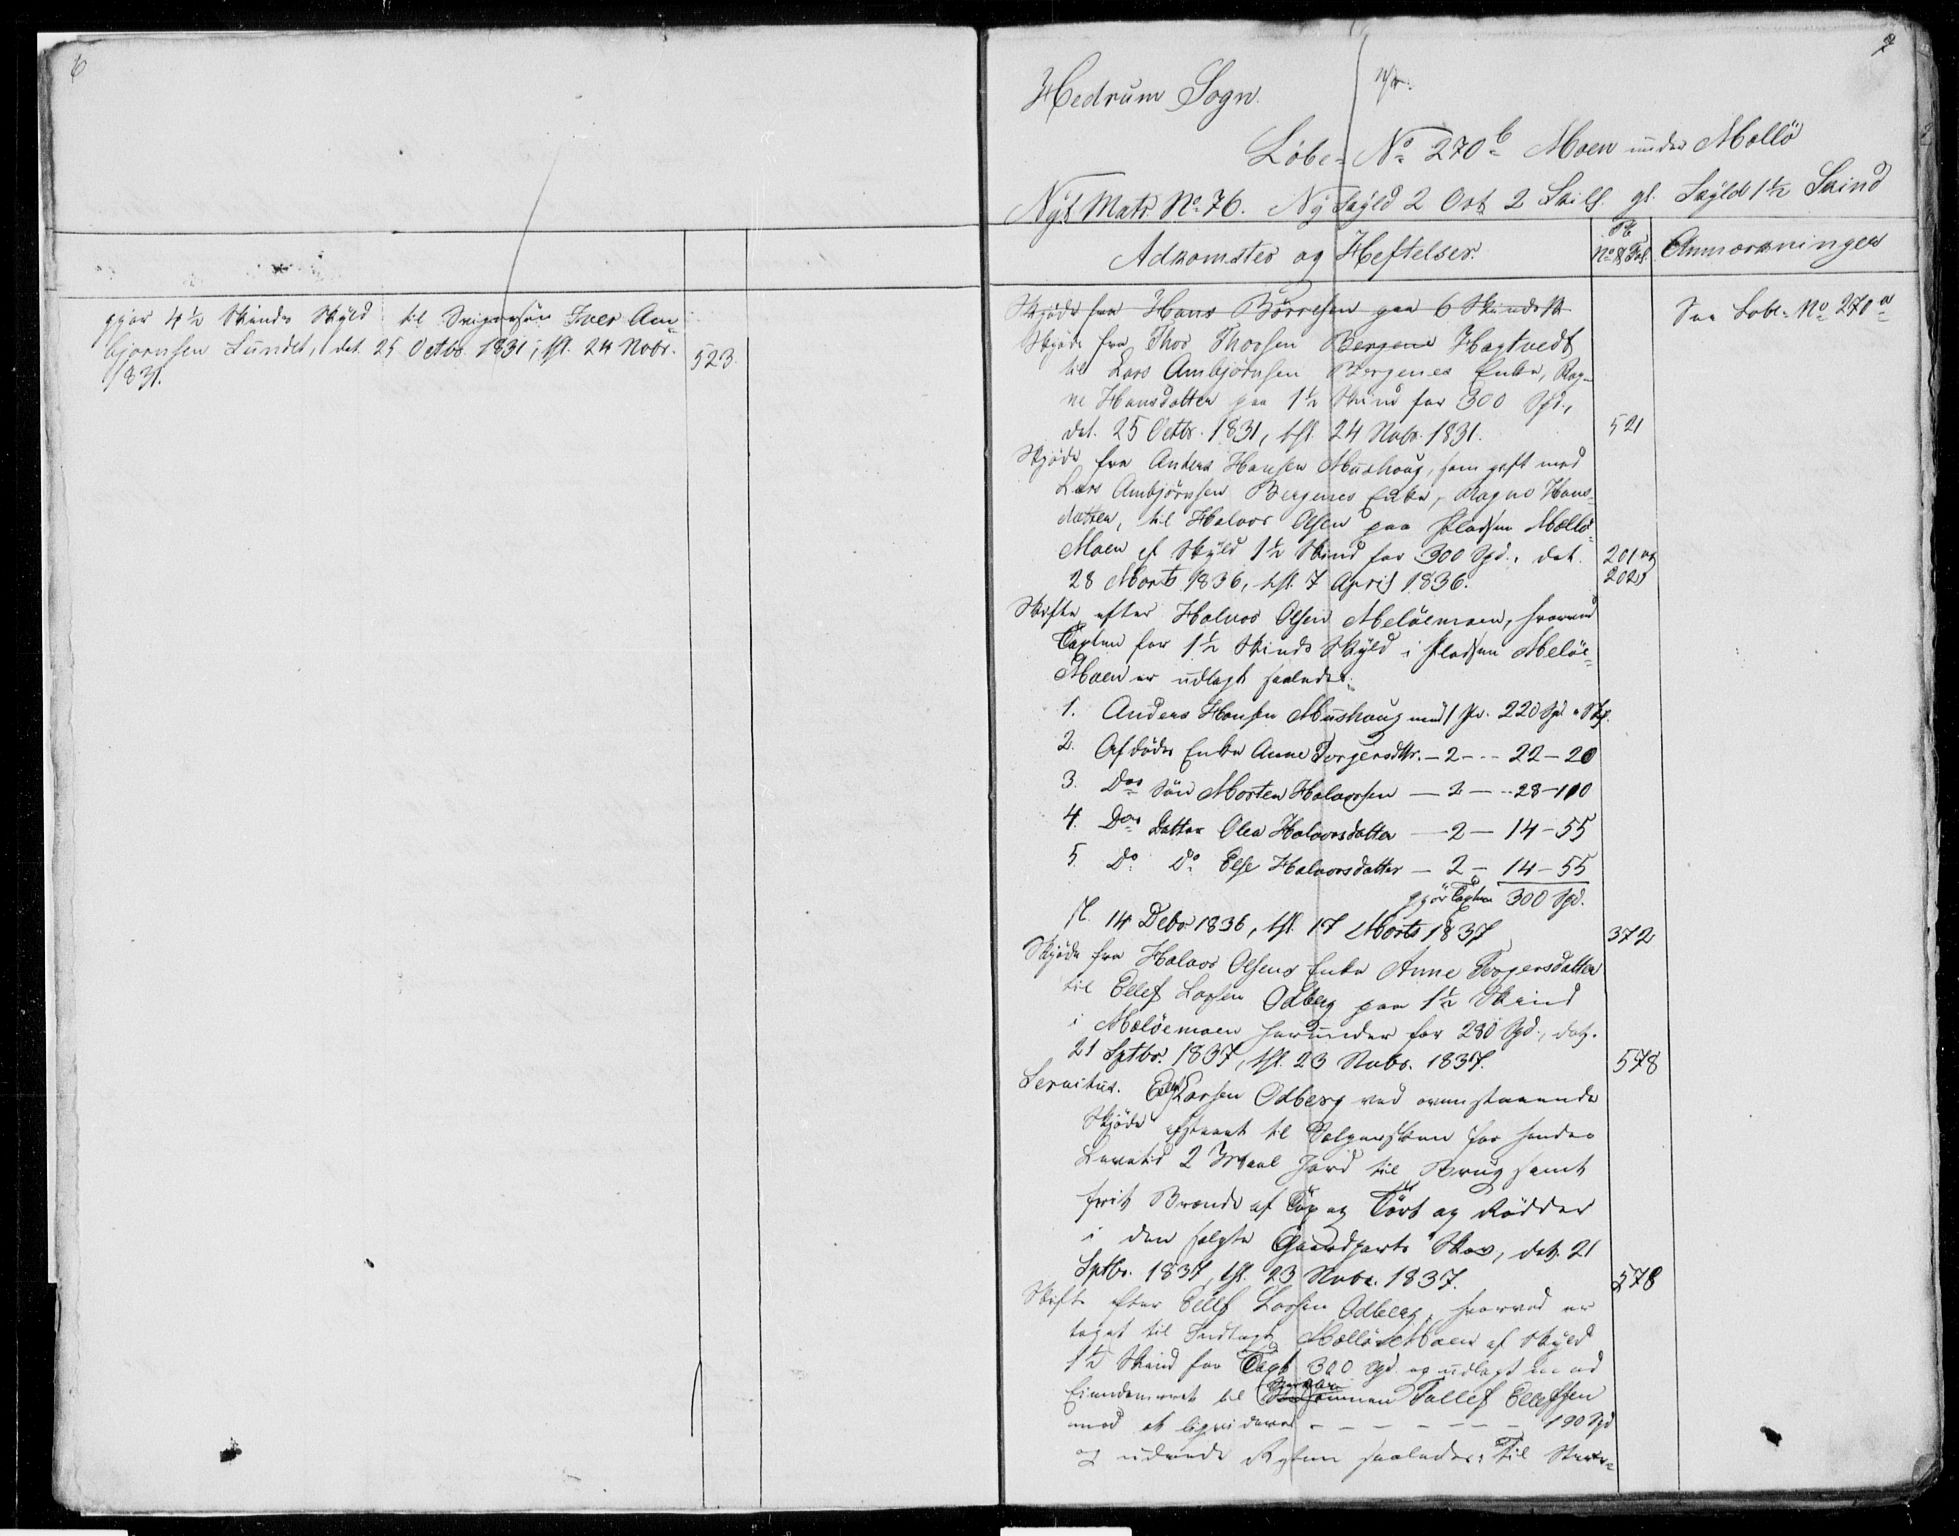 6
gjør 4 1/2 Skinds Skyld til Svigersøn Iver Am-
bjørnsen Lundet, dat. 25 Octbr. 1831, thl. 24 Novbr.
1831.
523.
7
Hedrum Sogn.
Löbe- No 270 b Moen under Mellö
Nyt Matr. No 76. Ny Skyld 2 Ort 2 Skill. gl. Skyld 1 1/2 Skind
Adkomster og Heftelser.
No & Fol.
Anmærkninger
Skjöde fra Hans Börresen paa 6 Skinds
See Löbe-No 270 a
Skjöde fra Thor Thorsen Bergene Hagtvedt
til Lars Ambjörnsen Bergenes Enke, Rag-
ne Hansdatter paa 1 1/2 Skind for 300 Spd.,
dat. 25 Octbr. 1831, thl. 24 Novbr. 1831.
521
Skjöde fra Anders Hansen Mushoug, som gift med
Lars Ambjörnsen Bergenes Enke, Ragne Hans-
datter, til Halvor Olsen paa Pladsen Mellö-
Moen af Skyld 1 1/2 Skind for 300 Spd., dat.
28 Marts 1836, thl. 7 April 1836.
201 og
202
Skifte efter Halvor Olsen Melöemoen, hvorved
Taxten for 1 1/2 Skinds Skyld i Pladsen Melöe-
Moen er udlagt saaledes:
1. Anders Hansen Mushoug med 1 Pr. 220 Spd. " Sk.
2. Afdödes Enke Anne Torgersdttr. - 2 - - 22 - 20
3. Dos Sön Morten Halvorsen - 2 - - 28 - 110
4. Dos Datter Olea Halvorsdatter - 2 - 14 - 55
5. Do Do Else Halvorsdatter - 2 - 14 - 55
gjör Taxten 300 Spd.
14 Debr 1836, thl. 17 Marts 1837
372
Skjöde fra Halvor Olsens Enke Anne Torgersdatter
til Ellef Larsen Odberg paa 1 1/2 Skind
i Melöemoen herunder for 280 Spd., dat.
21 Sptbr. 1837, thl. 23 Novbr. 1837.
578
Servitut. Ellef Larsen Odberg ved ovenstaaende
Skjöde afstaaet til Sælgersken for hendes
Levetid 2 Maal Jord til Brug samt
frit Brænde af Top og Tört og Rödder
i den solgte Gaardparts Skov, dat. 21
Sptbr. 1837, thl. 23 Novbr. 1837.
578
Skifte efter Ellef Larsen Odberg, hvorved er
taget til Indtægt Mellö Moen af Skyld
1 1/2 Skind for Taxt 300 Spd. og udlagt med
Eiendomsret til Tollef Ellefsen
med at liqvidere - - - - - - 190 Spd
og udrede Resten saaledes: Til